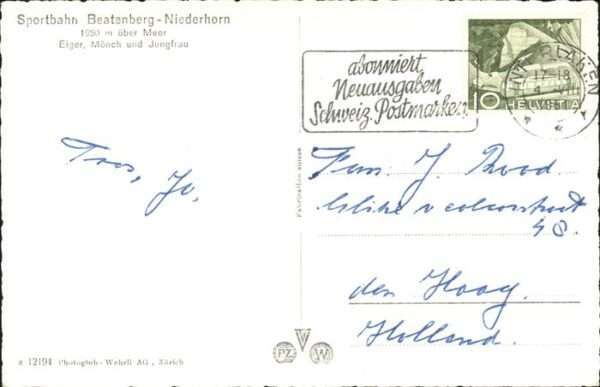 Sportbahn Beatenberg-Niederhorn
1950 m über Meer
Eiger, Mönch und Jungfrau
abonniert
Neuausgaben
Schweiz. Postmarken
10 HELVETIA
INTERLAKEN
17-18
VII
Fam. J. Rood
48.
den Haag.
Holland.
Fabrication suisse
PZ
W
12194 Photoglob-Wehrli AG, Zürich